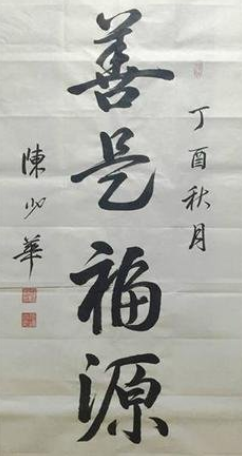 丁酉秋月
善是福源
陳少華